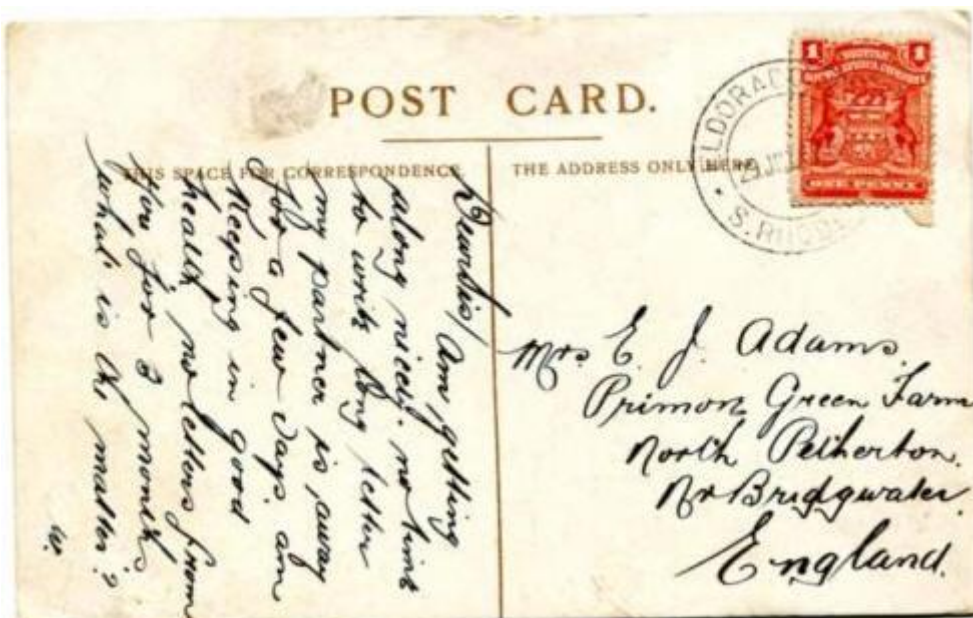 POST CARD.
THIS SPACE FOR CORRESPONDENCE.
THE ADDRESS ONLY HERE.
LDORAD
29 JU
S. RHOD
1 1
BRITISH
SOUTH AFRICA COMPANY
ONE PENNY
Dear Sis/
Am getting
along nicely. no time
to write long letter
my partner is away
for a few days. am
Keeping in good
health no letters from
you for 3 months
what is the matter?
W.
Mrs E. J. Adams.
Primon Green Farm
North Petherton.
Nr Bridgwater.
England.